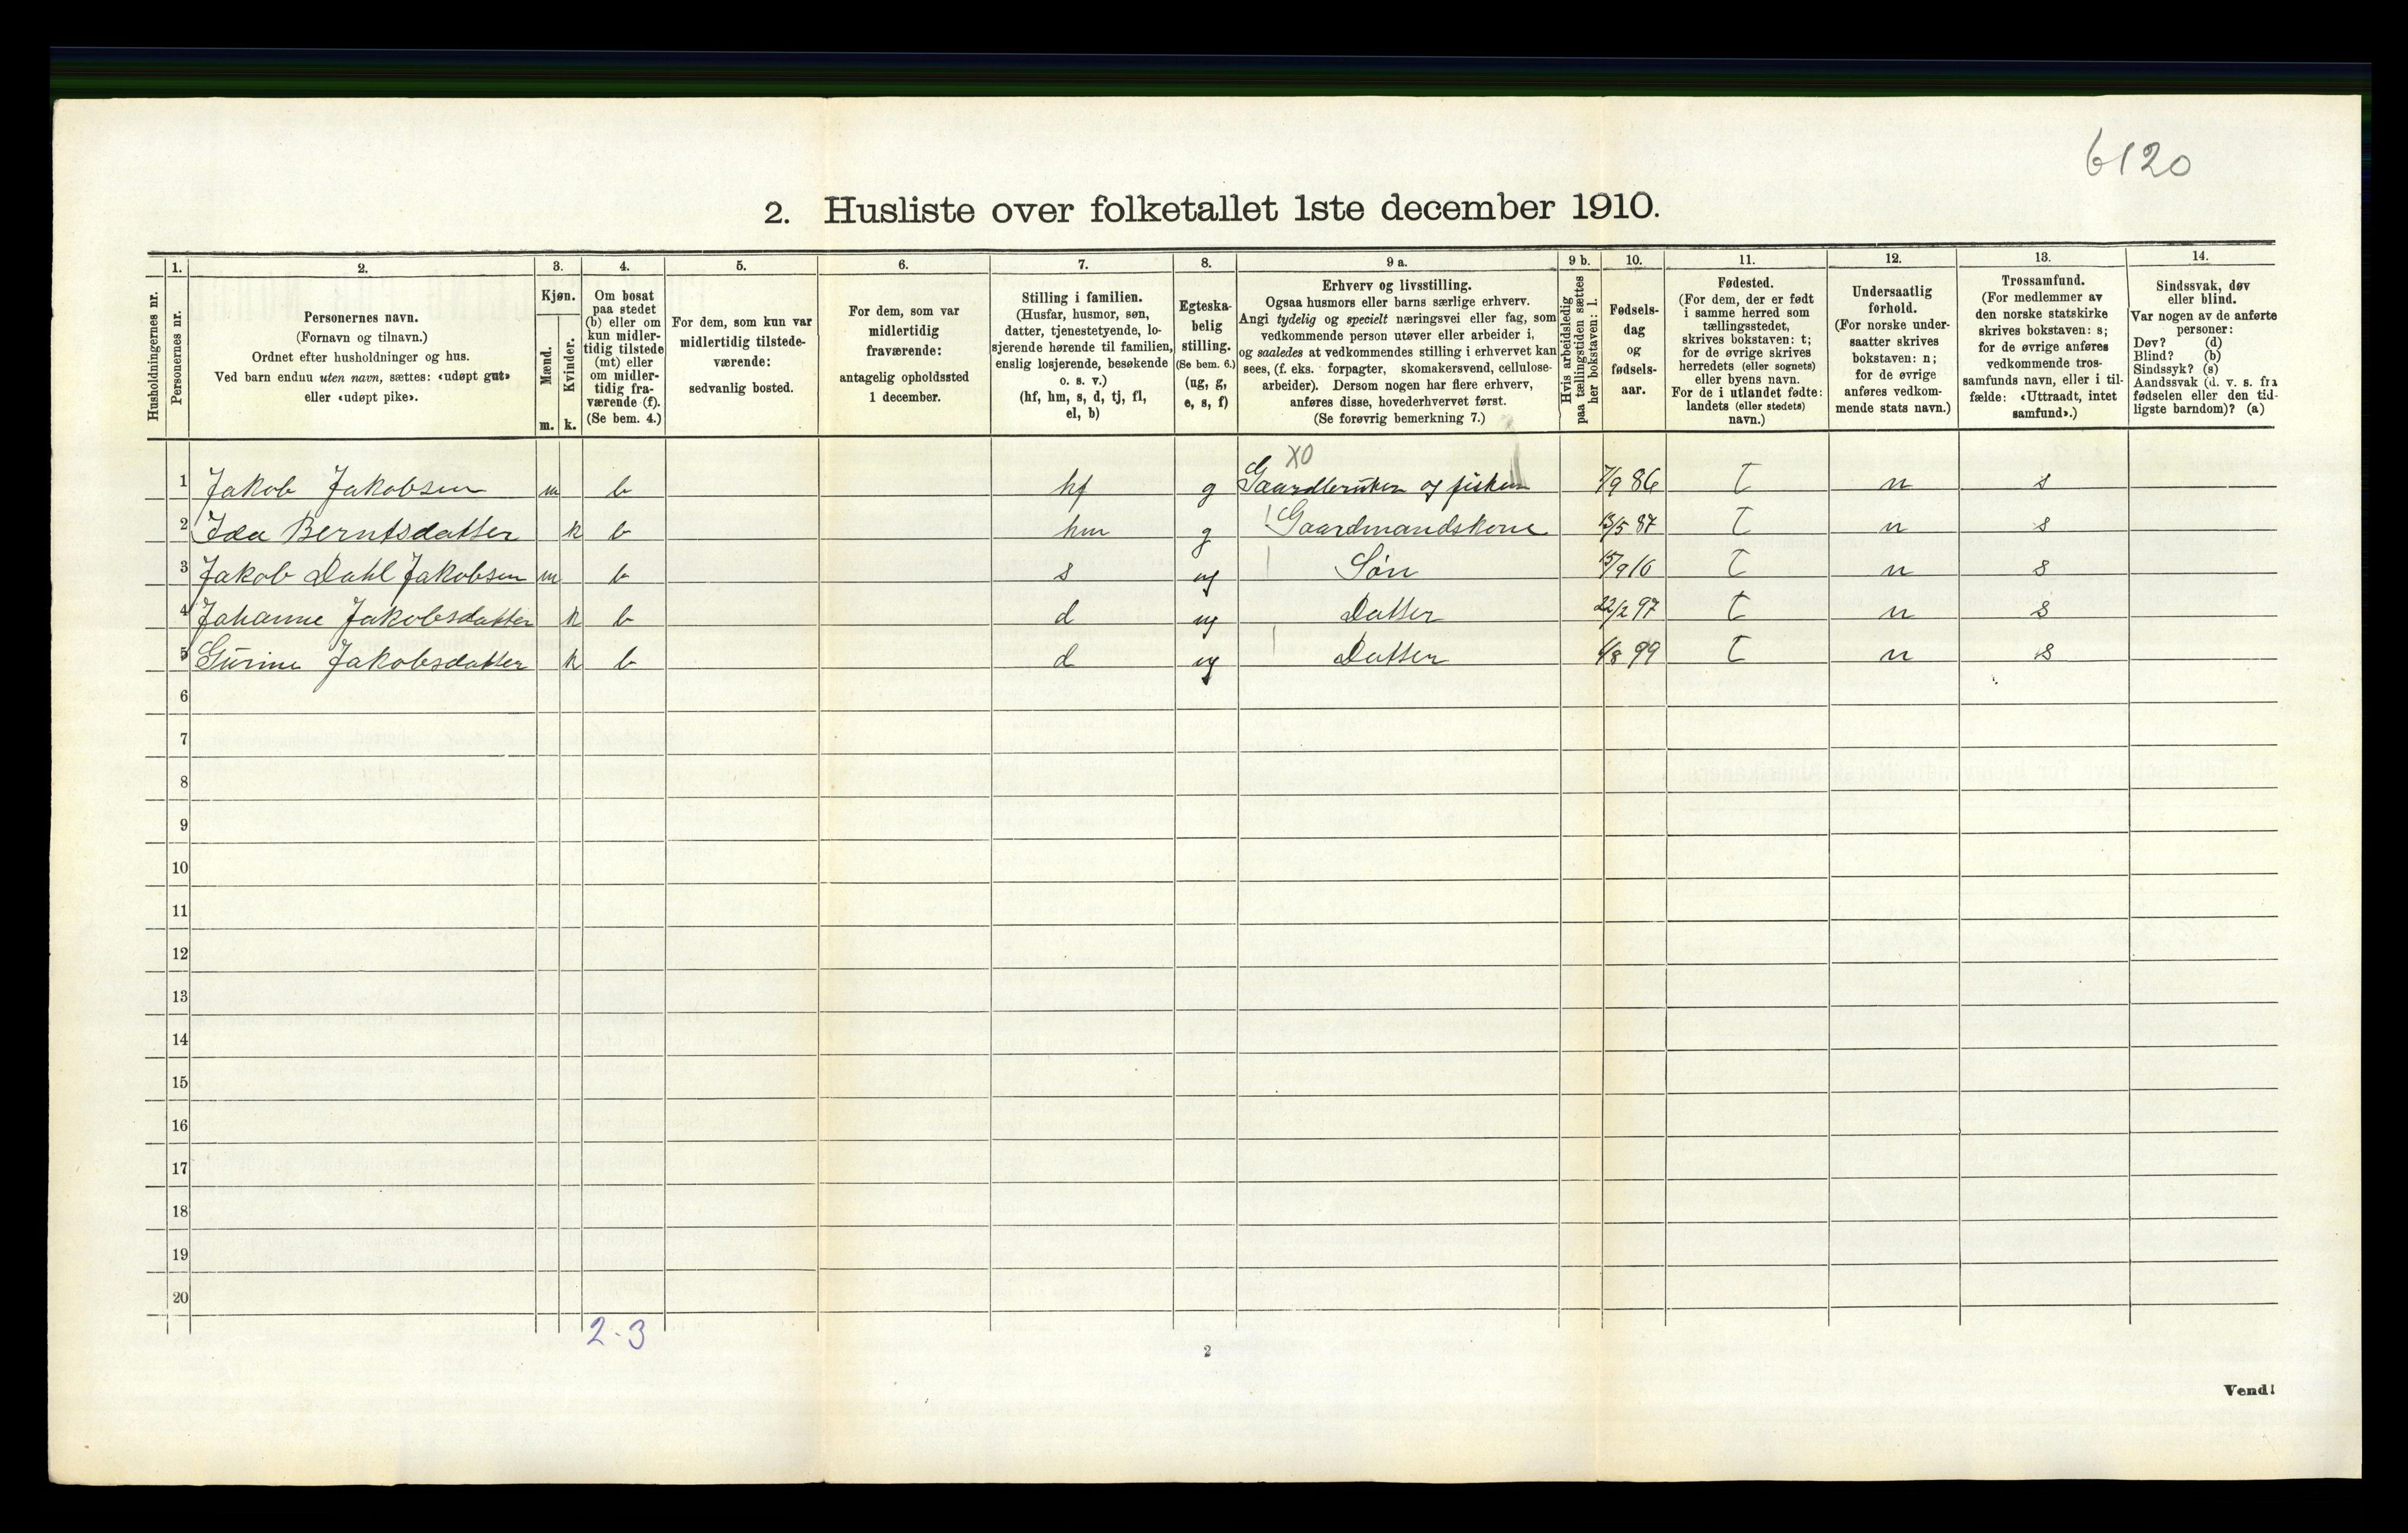 6120
2. Husliste over folketallet 1ste december 1910.
Husholdningernes nr.
1.
Personernes nr.
2.
Personernes navn.
(Fornavn og tilnavn.)
Ordnet efter husholdninger og hus.
Ved barn endnu uten navn, sættes: «udøpt gut»
eller «udøpt pike».
3.
Kjøn.
Mænd.
Kvinder.
m. k.
4.
Om bosat
paa stedet
(b) eller om
kun midler-
tidig tilstede
(mt) eller
om midler-
tidig fra-
værende (f).
(Se bem. 4.)
5.
For dem, som kun var
midlertidig tilstede-
værende:
sedvanlig bosted.
6.
For dem, som var
midlertidig
fraværende:
antagelig opholdssted
1 december.
7.
Stilling i familien.
(Husfar, husmor, søn,
datter, tjenestetyende, lo-
sjerende hørende til familien,
enslig losjerende, besøkende
o. s. v.)
(hf, hm, s, d, tj, fl,
el, b)
8.
Egteska-
belig
stilling.
(Se bem. 6.)
(ug, g,
e, s, f)
9 a.
Erhverv og livsstilling.
Ogsaa husmors eller barns særlige erhverv.
Angi tydelig og specielt næringsvei eller fag, som
vedkommende person utøver eller arbeider i,
og saaledes at vedkommendes stilling i erhvervet kan
sees, (f. eks. forpagter, skomakersvend, cellulose-
arbeider). Dersom nogen har flere erhverv,
anføres disse, hovederhvervet først.
(Se forøvrig bemerkning 7.)
9 b.
Hvis arbeidsledig
paa tællingstiden sættes
her bokstaven: l.
10.
Fødsels-
dag
og
fødsels-
aar.
11.
Fødested.
(For dem, der er født
i samme herred som
tællingsstedet,
skrives bokstaven: t;
for de øvrige skrives
herredets (eller sognets)
eller byens navn.
For de i utlandet fødte:
landets (eller stedets)
navn.)
12.
Undersaatlig
forhold.
(For norske under-
saatter skrives
bokstaven: n;
for de øvrige
anføres vedkom-
mende stats navn.)
13.
Trossamfund.
(For medlemmer av
den norske statskirke
skrives bokstaven: s;
for de øvrige anføres
vedkommende tros-
samfunds navn, eller i til-
fælde: «Uttraadt, intet
samfund».)
14.
Sindssvak, døv
eller blind.
Var nogen av de anførte
personer:
Døv? (d)
Blind? (b)
Sindssyk? (s)
Aandssvak (d. v. s. fra
fødselen eller den tid-
ligste barndom)? (a)
XO
1 Jakob Jakobsen m b hf g Gaardbruker og fisker 7/9 86 t n s
2 Ida Berntsdatter k b hm g Gaardmandskone 13/5 87 t n s
3 Jakob Dahl Jakobsen m b s ug Søn 15/9 10 t n s
4 Johanne Jakobsdatter k b d ug Datter 22/2 97 t n s
5 Gurine Jakobsdatter k b d ug Datter 99 t n s
6
7
8
9
10
11
12
13
14
15
16
17
18
19
20
2-3
2
Vend!